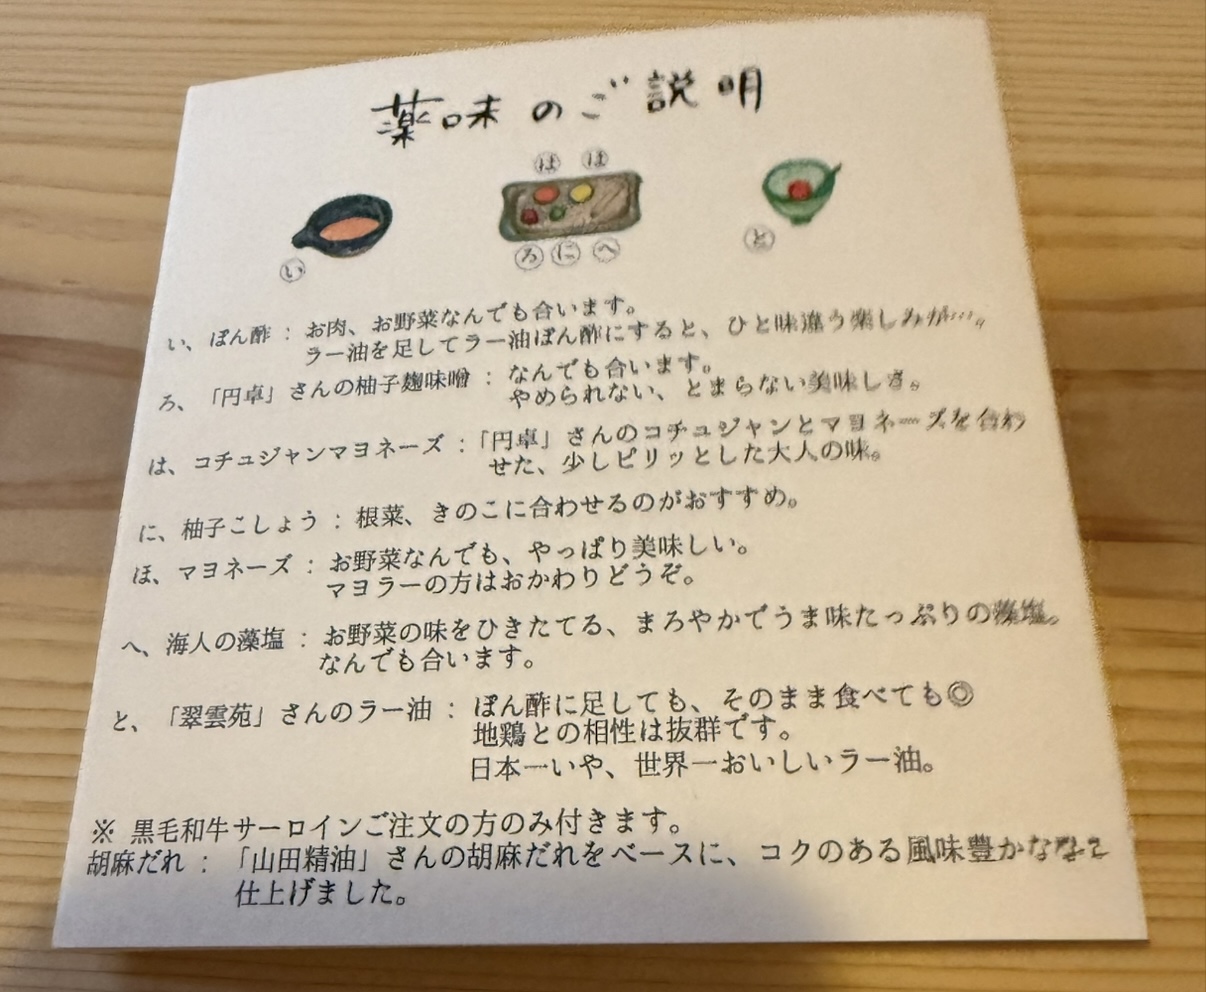 薬味のご説明
は ほ
い ろ に へ と
い、ぽん酢：お肉、お野菜なんでも合います。
ラー油を足してラー油ぽん酢にすると、ひと味違う楽しみが…。
ろ、「円卓」さんの柚子麹味噌：なんでも合います。
やめられない、とまらない美味しさ。
は、コチュジャンマヨネーズ：「円卓」さんのコチュジャンとマヨネーズを合わ
せた、少しピリッとした大人の味。
に、柚子こしょう：根菜、きのこに合わせるのがおすすめ。
ほ、マヨネーズ：お野菜なんでも、やっぱり美味しい。
マヨラーの方はおかわりどうぞ。
へ、海人の藻塩：お野菜の味をひきたてる、まろやかでうま味たっぷりの藻塩。
なんでも合います。
と、「翠雲苑」さんのラー油：ぽん酢に足しても、そのまま食べても◎
地鶏との相性は抜群です。
日本一いや、世界一おいしいラー油。
※ 黒毛和牛サーロインご注文の方のみ付きます。
胡麻だれ：「山田精油」さんの胡麻だれをベースに、コクのある風味豊かな
仕上げました。